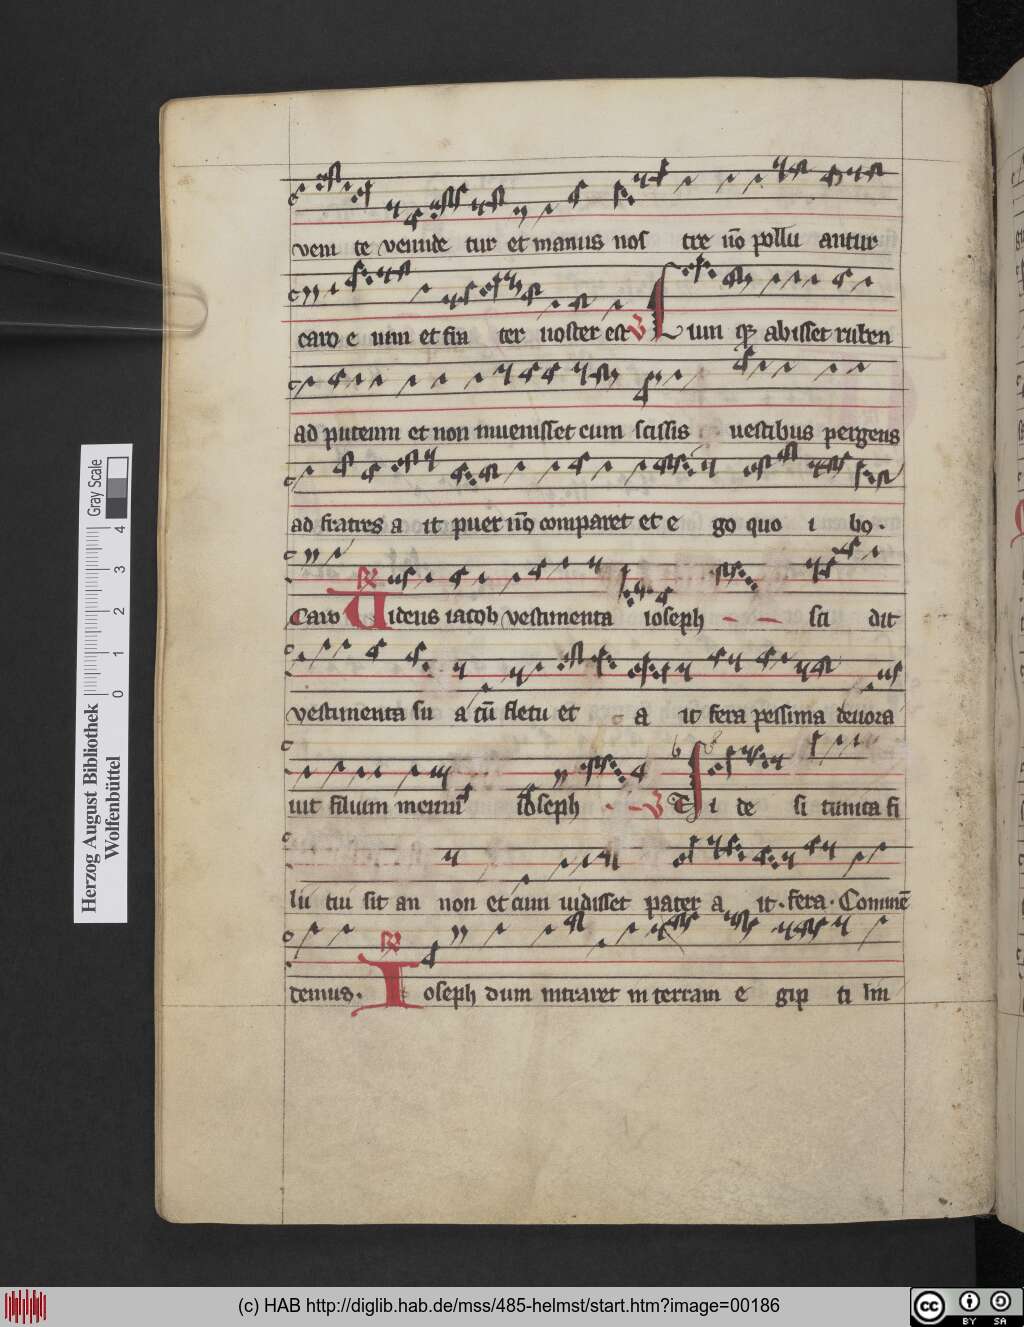 veni te venunde tur et manus nos tre nō pollu antur
caro e nim et fra ter noster est V Cum qȝ abisset ruben
ad puteum et non inuenisset cum scissis uestibus pergens
ad fratres a it puer nō comparet et e go quo i bo.
Caro R Uidens iacob vestimenta ioseph sci dit
vestimenta su a cū fletu et a it fera pessima deuora
uit filium meum ioseph V Vi de si tunica fi
lii tui sit an non et cum uidisset pater a it. fera. Commē
temus. R Ioseph dum intraret in terram e gip ti lin
Gray Scale
0 1 2 3 4
Herzog August Bibliothek
Wolfenbüttel
(c) HAB http://diglib.hab.de/mss/485-helmst/start.htm?image=00186
cc BY SA